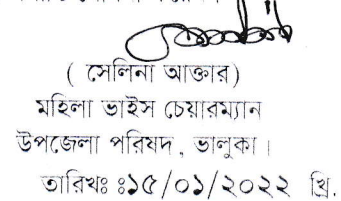 ( সেলিনা আক্তার)
মহিলা ভাইস চেয়ারম্যান
উপজেলা পরিষদ , ভালুকা।
তারিখঃ ঃ১৫/০১/২০২২ খ্রি.